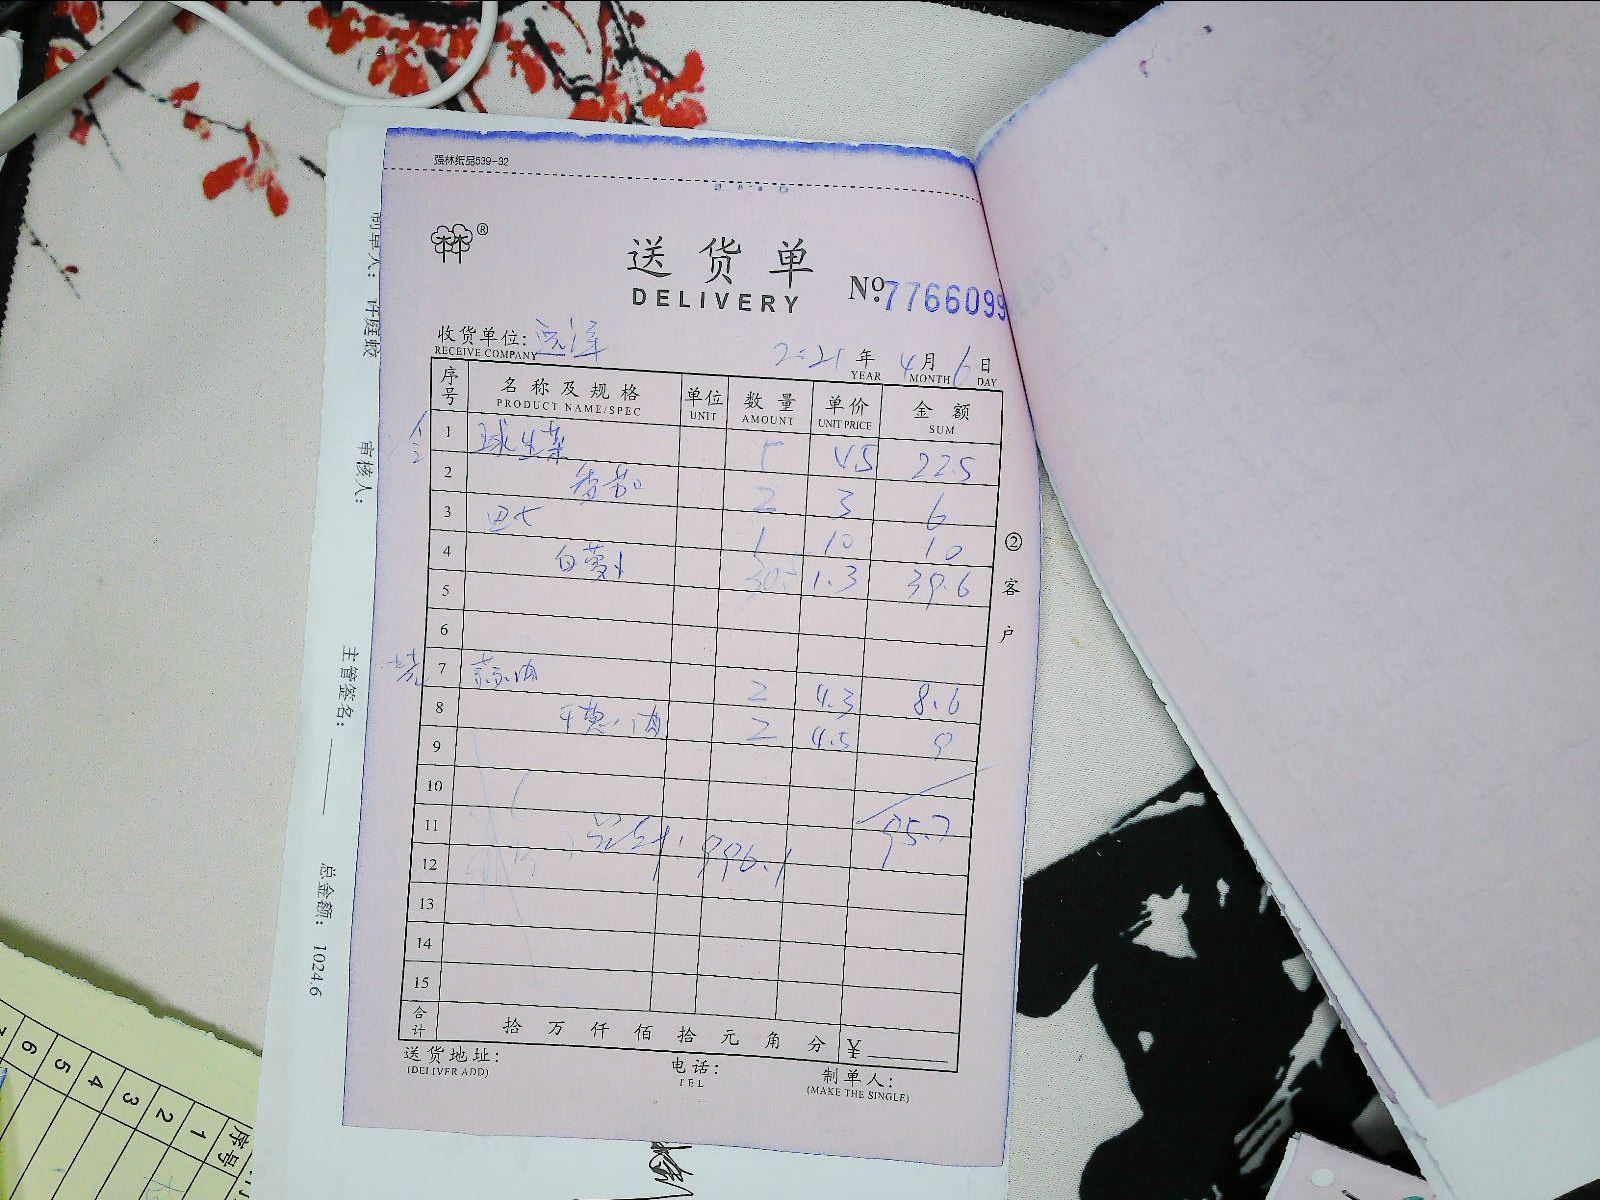 强林纸品539-32
®
送货单
DELIVERY
No:7766099
收货单位:
RECEIVE COMPANY
2021 年 4 月 6 日
YEAR MONTH DAY
序号 名称及规格 单位 数量 单价 金额
PRODUCT NAME/SPEC UNIT AMOUNT UNIT PRICE SUM
1 球生菜 5 4.5 22.5
2 番茄 2 3 6
3 1 10 10
4 白萝卜 30.5 1.3 39.6
5
6
7 蒜油 2 4.3 8.6
8 2 4.5 9
9
10
11 95.7
12 996.1
13
14
15
合计 拾 万 仟 佰 拾 元 角 分 ¥
送货地址:
(DELIVER ADD)
电话:
TEL
制单人:
(MAKE THE SINGLE)
②客户
制单人: 许庭蛟
审核人:
主管签名:
总金额: 1024.6
序号
1
2
3
4
5
6
7